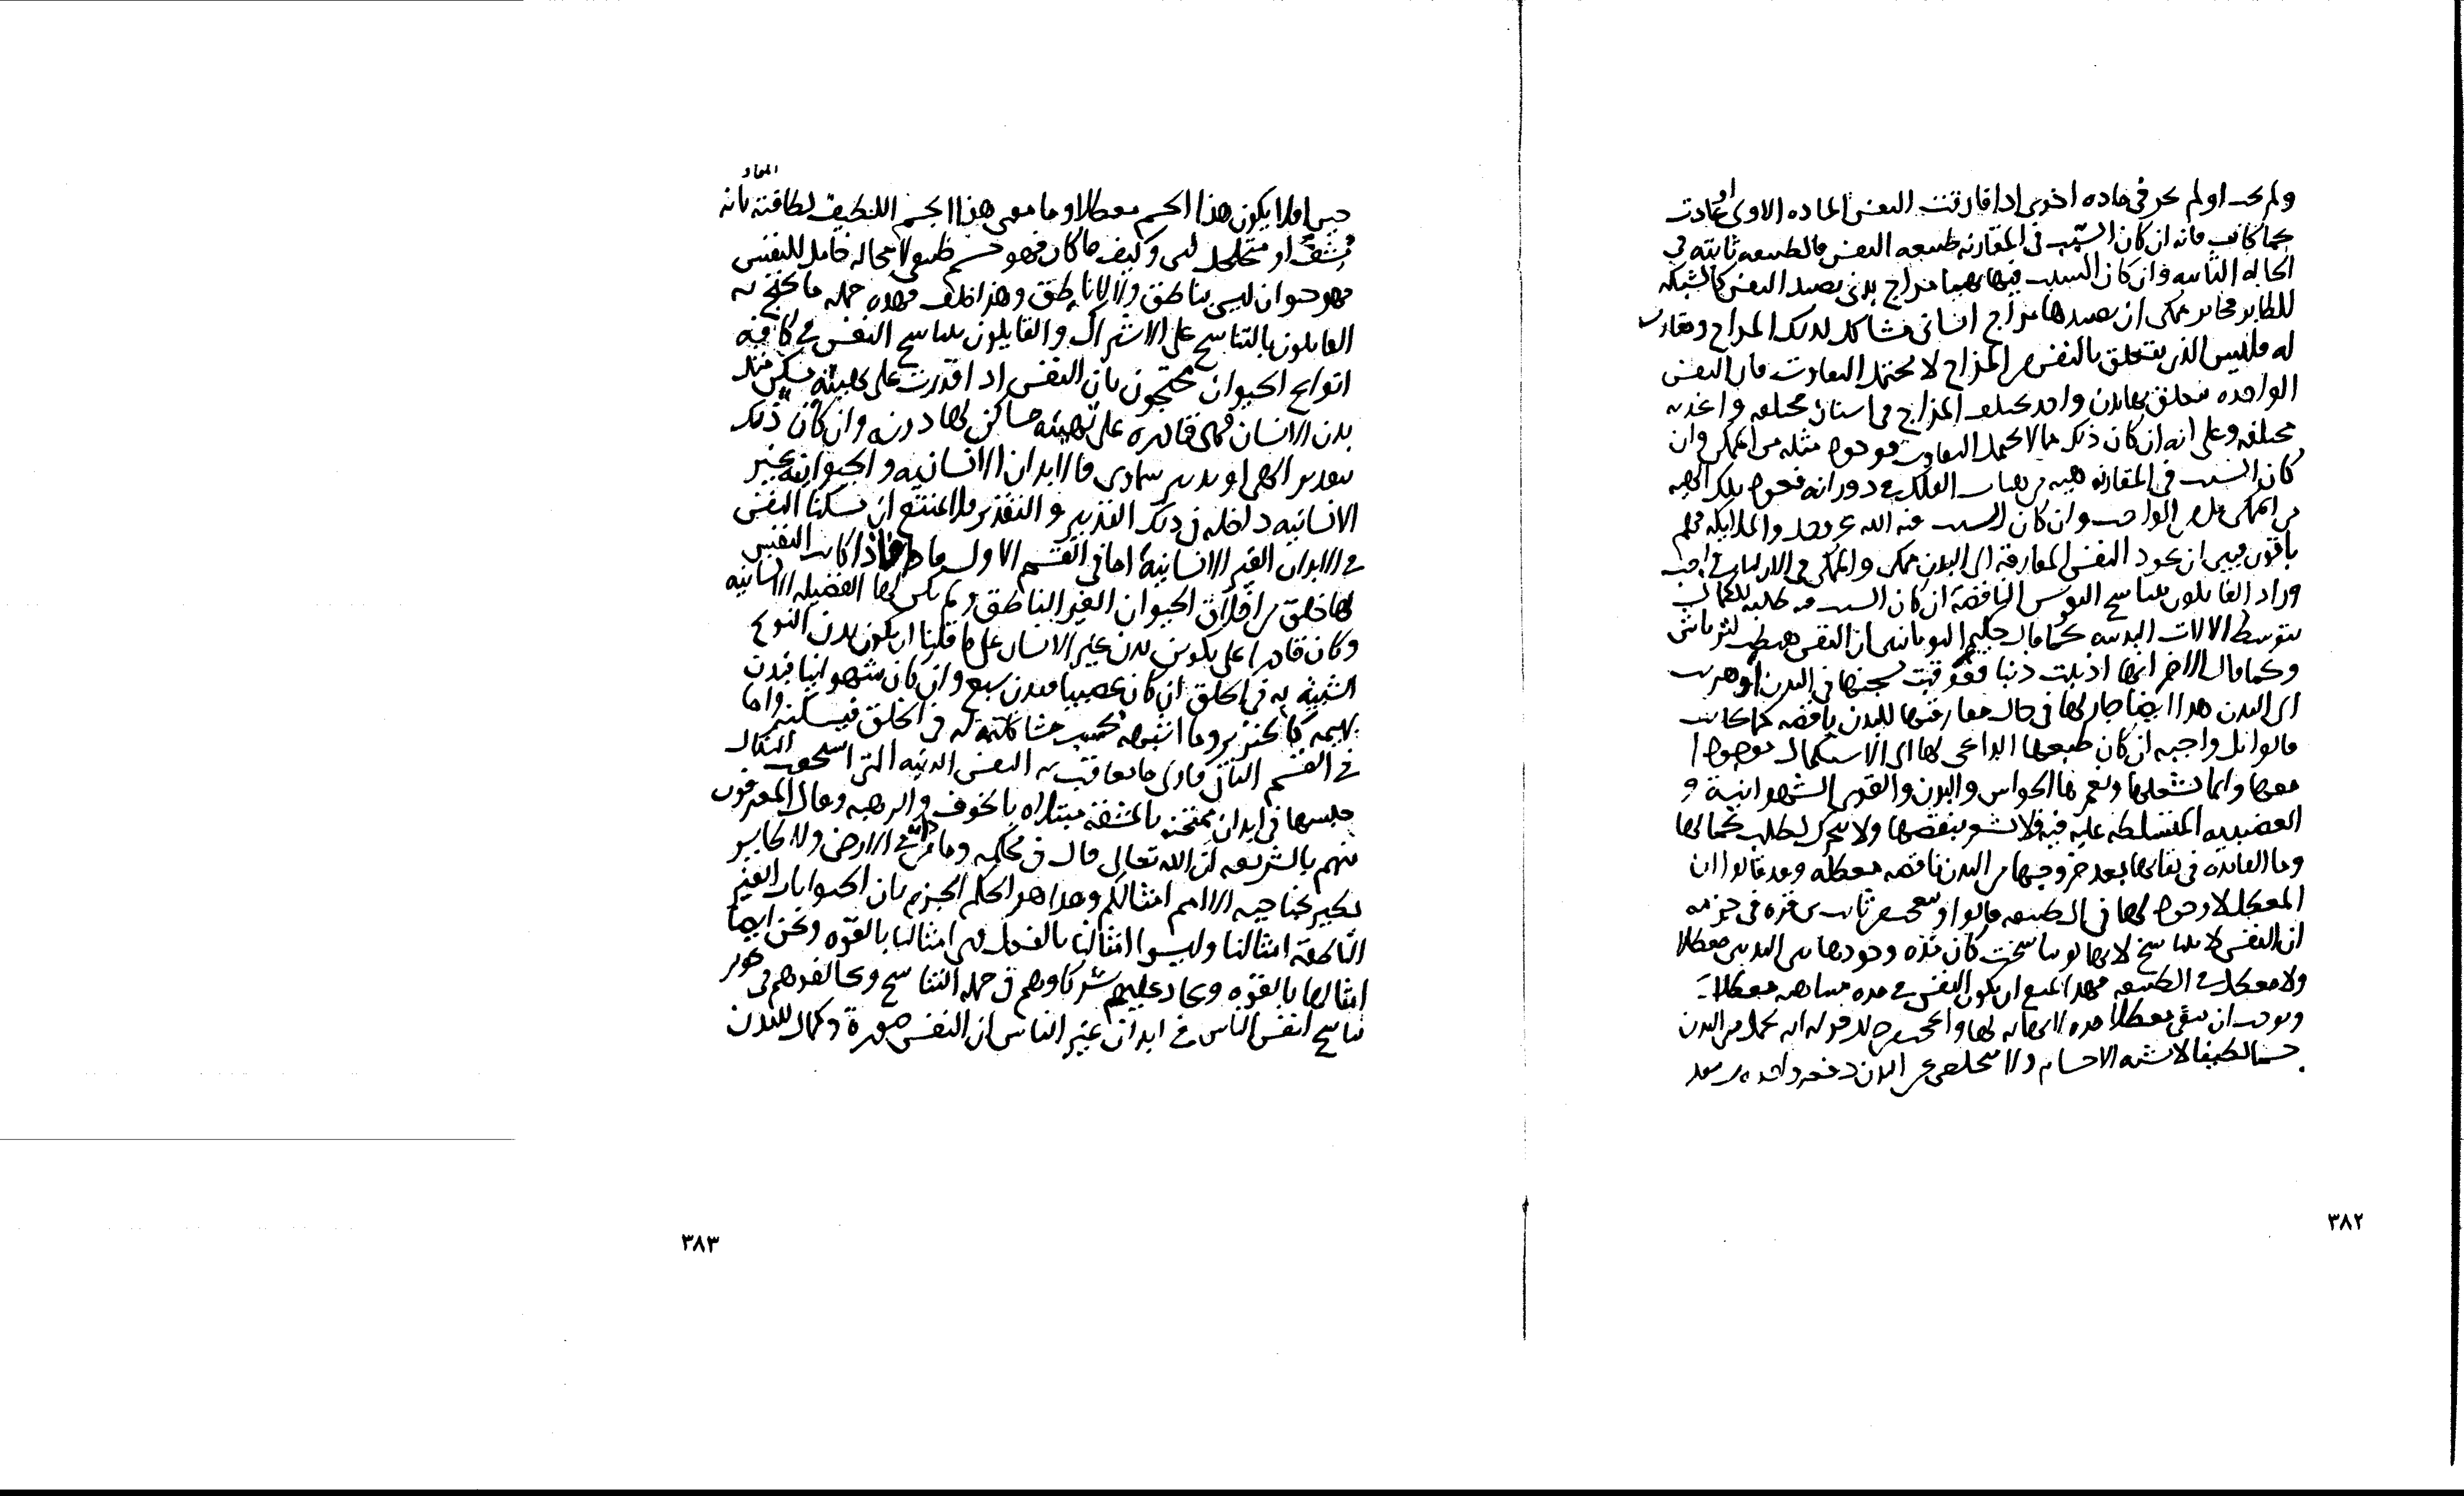 ولم يحب اولم يجز في ماده اخرى اذا فارقت النفس الماده الاولى او عادت
كما كانت فانه ان كان السبب في المقارنه طبيعه النفس فالطبيعه ثابته في
الحاله الثانيه وان كان السبب فيها مزاج بدنى يصيد النفس كالشبكه
للطاير فجايز ممكن ان يصيدها مزاج انسانى مشاكل لذلك المزاج ومقارب
له فليس الذى يتعلق بالنفس من المزاج لا يحتمل التفاوت فان النفس
الواحده يتعلق بها بدن واحد مختلف المزاج في اسنان مختلفه واغذيه
مختلفه وعلى انه ان كان ذلك مما لا يحتمل التفاوت فوجود مثله من الممكن وان
كان السبب في المقارنه هيئه من هيئات الفلك في دورانه فعود تلك الهيه
من الممكن بل من الواجب وان كان السبب عنه الله عز وجل والملايكه فهم
باقون فبين ان عود النفس المفارقه الى البدن ممكن والممكن في الازليات واجب
وزاد القايلون بتناسخ النفوس الناقصه ان كان السبب فيه طلبه للكمال
بتوسط الالات البدنيه كما قال حكيم اليونانيين ان النفس هبطت لترتاش
وكما قال الاخر انها اذنبت ذنبا فعوقبت بسجنها في البدن او هربت
الى البدن هذا ايضا جار لها في حال مفارقتها للبدن ناقصه كما كانت
قالوا بل واجبه ان كان طبيعتها الداعى لها الى الاستكمال موجودا
معها وانما تشغلها وتغمرها الحواس والبدن والقوى الشهوانيه و
الغضبيه المتسلطه عليه فيه فلا تشعر بنقصها ولا تتحرك لطلب كمالها
وما الفايده في بقايها بعد خروجها من البدن ناقصه معطله وقد قالوا ان
المعطل لا وجود لها في الطبيعه قالوا وتعجب من ثابت بن قره في جزمه
ان النفس لا تتناسخ لانها لو تناسخت كان مده وجودها بين البدنين معطلا
ولا معطل في الطبيعه فهذا يمنع ان يكون النفس في مده متناهيه معطلا
ويوجب ان تبقى معطلا مده لا نهايه لها واعجب من ذلك قوله انه تحمل من البدن
جسما لطيفا لا يشبه الاجسام والا تتخلص عن البدن دفعه واحده من بعد
المعاد
حين افلا يكون هذا الجسم معطلا وما معنى هذا الجسم اللطيف لطافته بانه
مشف او متخلخل لين وكيف ما كان فهو جسم طبيعى لا محاله حامل للنفس
فهو حيوان ليس بناطق ولا لاناطق وهذا خلف فهذه جمله ما يحتج به
القايلون بالتناسخ على الاشتراك والقايلون بتناسخ النفس في كافة
انواع الحيوان يحتجون بان النفس اذا قدرت على تهيئه مسكن مثل
بدن الانسان فهى قادره على تهيئه مساكن لها دونه وان كان ذلك
بتقدير الهى او تدبير سماوى فالابدان الانسانيه والحيوانيه غير
الانسانيه داخله في ذلك التدبير والتقدير فلا يمتنع ان تسكنها النفس
في الابدان الغير الانسانية اما في القسم الاول فاذا كانت النفس
لها خلق من اخلاق الحيوان الغير الناطق ولم تكن لها الفضيله الانسانيه
وكان قادرا على تكوين بدن غير الانسان على ما قلنا ان يكون بدن النوع
الشبيه به في الخلق ان كان غضبيا فبدن سبع وان كان شهوانيا فبدن
بهيمه كالخنزير وما اشبهه بحسب مشاكلته له في الخلق فيسكنه واما
في القسم الثانى فاولى ما يعاقب به النفس الدنيه التى استحقت النكال
حبسها في ابدان ممتحنه بالمشقه مبتلاه بالخوف والرهبه وقال المعترفون
منهم بالشريعه ان الله تعالى قال في محكمه وما من دابة في الارض ولا طاير
يطير بجناحيه الا امم امثالكم وهذا هو الحكم الجزم بان الحيوانات الغير
الناطقة امثالنا وليسوا امثالنا بالفعل فهى امثالنا بالقوه ونحن ايضا
امثالها بالقوه وعاد عليهم شركاوهم في جمله التناسخ ومخالفوهم في جوز
تناسخ انفس الناس في ابدان غير الناس ان النفس صورة وكمال للبدن
٣٨٢
٣٨٣